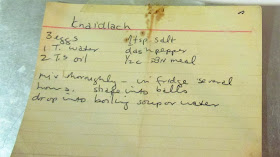 Knaidlach
3 eggs tsp. salt
1 T. water dash pepper
2 T.s oil meal
Mix thoroughly - in fridge several
hours. shape into balls
drop into boiling soup or water